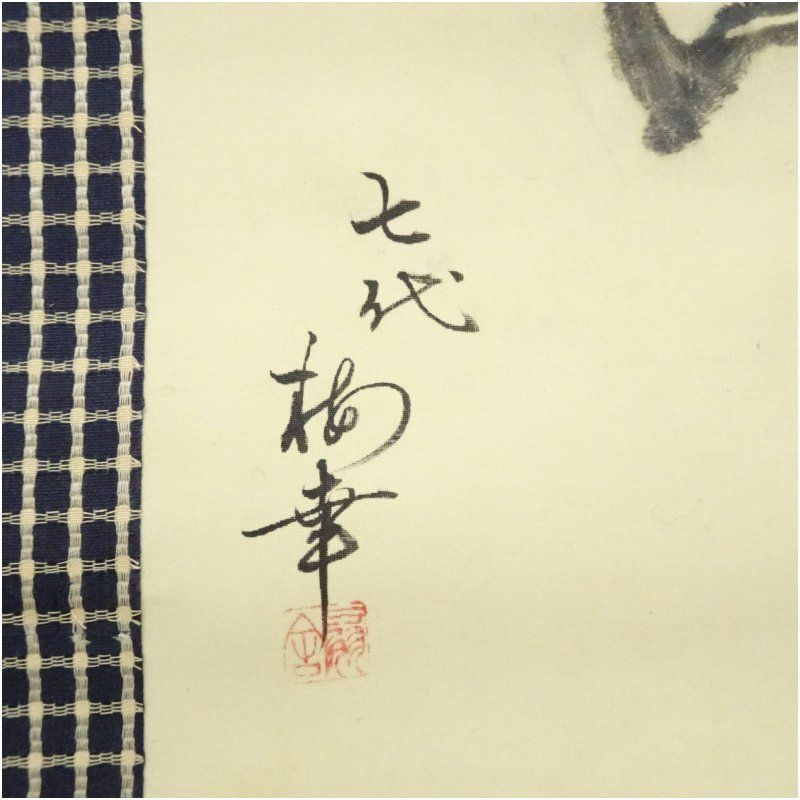 七代
梅幸